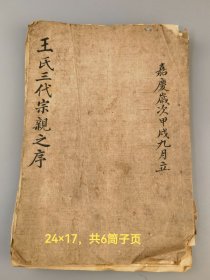 嘉慶歲次甲戌九月立
王氏三代宗親之序
24×17，共6筒子页